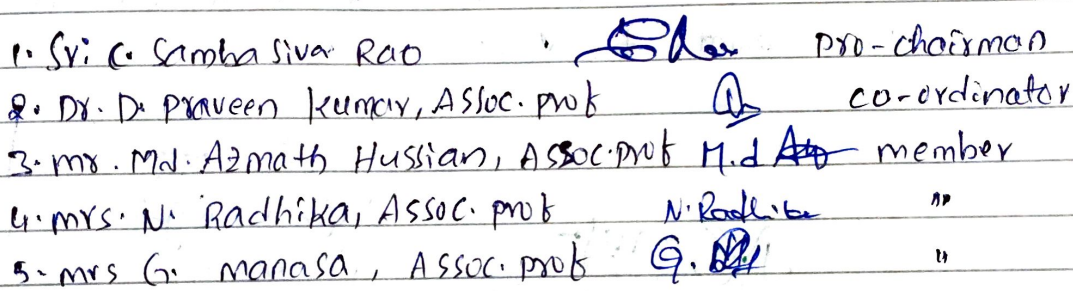 1. Sri C. Samba Siva Rao pro-chairman
2. Dr. D. Praveen Kumar, Assoc. prof co-ordinator
3. mr. Md. Azmath Hussian, Assoc. prof M.d member
4. mrs. N. Radhika, Assoc. prof N. Radhika "
5. mrs G. manasa, Assoc. prof G. "